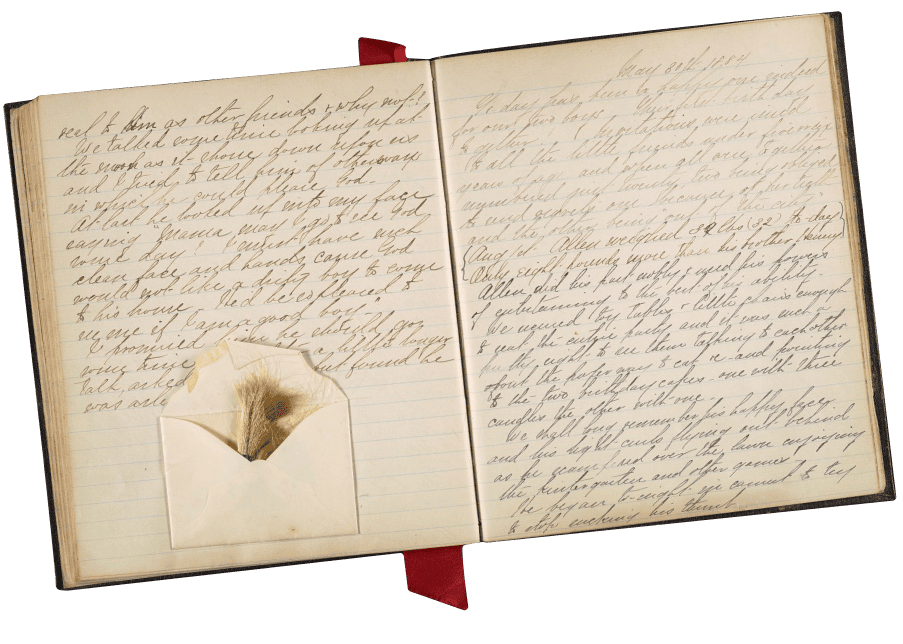 real to him as other friends & why not!
We talked some time looking up at
the moon as it shone down upon us
and I tried to tell him of other ways
in which he could please God.
At last he looked up into my face
saying "Mama may I go to see God
some day! I must have nice
clean face and hands cause God
would not like a dirty boy to come
to his home. He'd be so pleased to
see me if I am a good boy."
I promised him he should go
some time a little longer
talk, asked but found he
was
May 30th 1884
To day has been a happy one indeed
for our two boys. Their birth day
together. Invitations were issued
to all the little friends under five
years of age and when all were together
numbered just twenty, two being obliged
to send regrets one because of
and the other being out of the city
Aug 1st. Allen weighed 32 lbs (32) to-day
Only eight pounds more than his brother
Allen did his part nobly & used his powers
of entertaining to the best of his ability.
We secured toy tables & little chairs enough
to seat the entire party and it was such a
pretty sight to see them talking to each other
about the proper way to eat &c and pointing
to the two birthday cakes - one with three
candles the other with one.
We shall long remember his happy face
and his light curls flying out behind
as he scampered over the lawn enjoying
the kindergarten and other games.
He began to-night to try
to stop sucking his thumb.